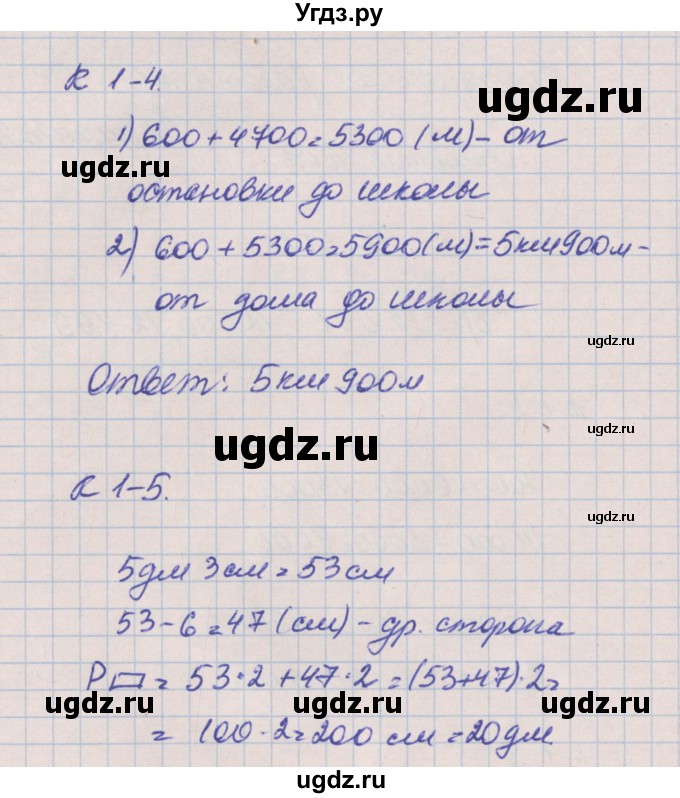 Угдз.ру
К 1-4.
ugdz.ru
1) 600+4700=5300 (м) - от
ugdz.ru
остановки до школы
2) 600+5300=5900(м)=5км900м-
от дома до школы
ugdz.ru
Ответ: 5км 900м
ugdz.ru
К 1-5.
ugdz.ru
5дм 3см = 53см
53-6=47 (см) - др. сторона
P▭ = 53·2+47·2=(53+47)·2=
ugdz.ru
ugdz.ru
= 100·2=200 см =20дм.
ugdz.ru